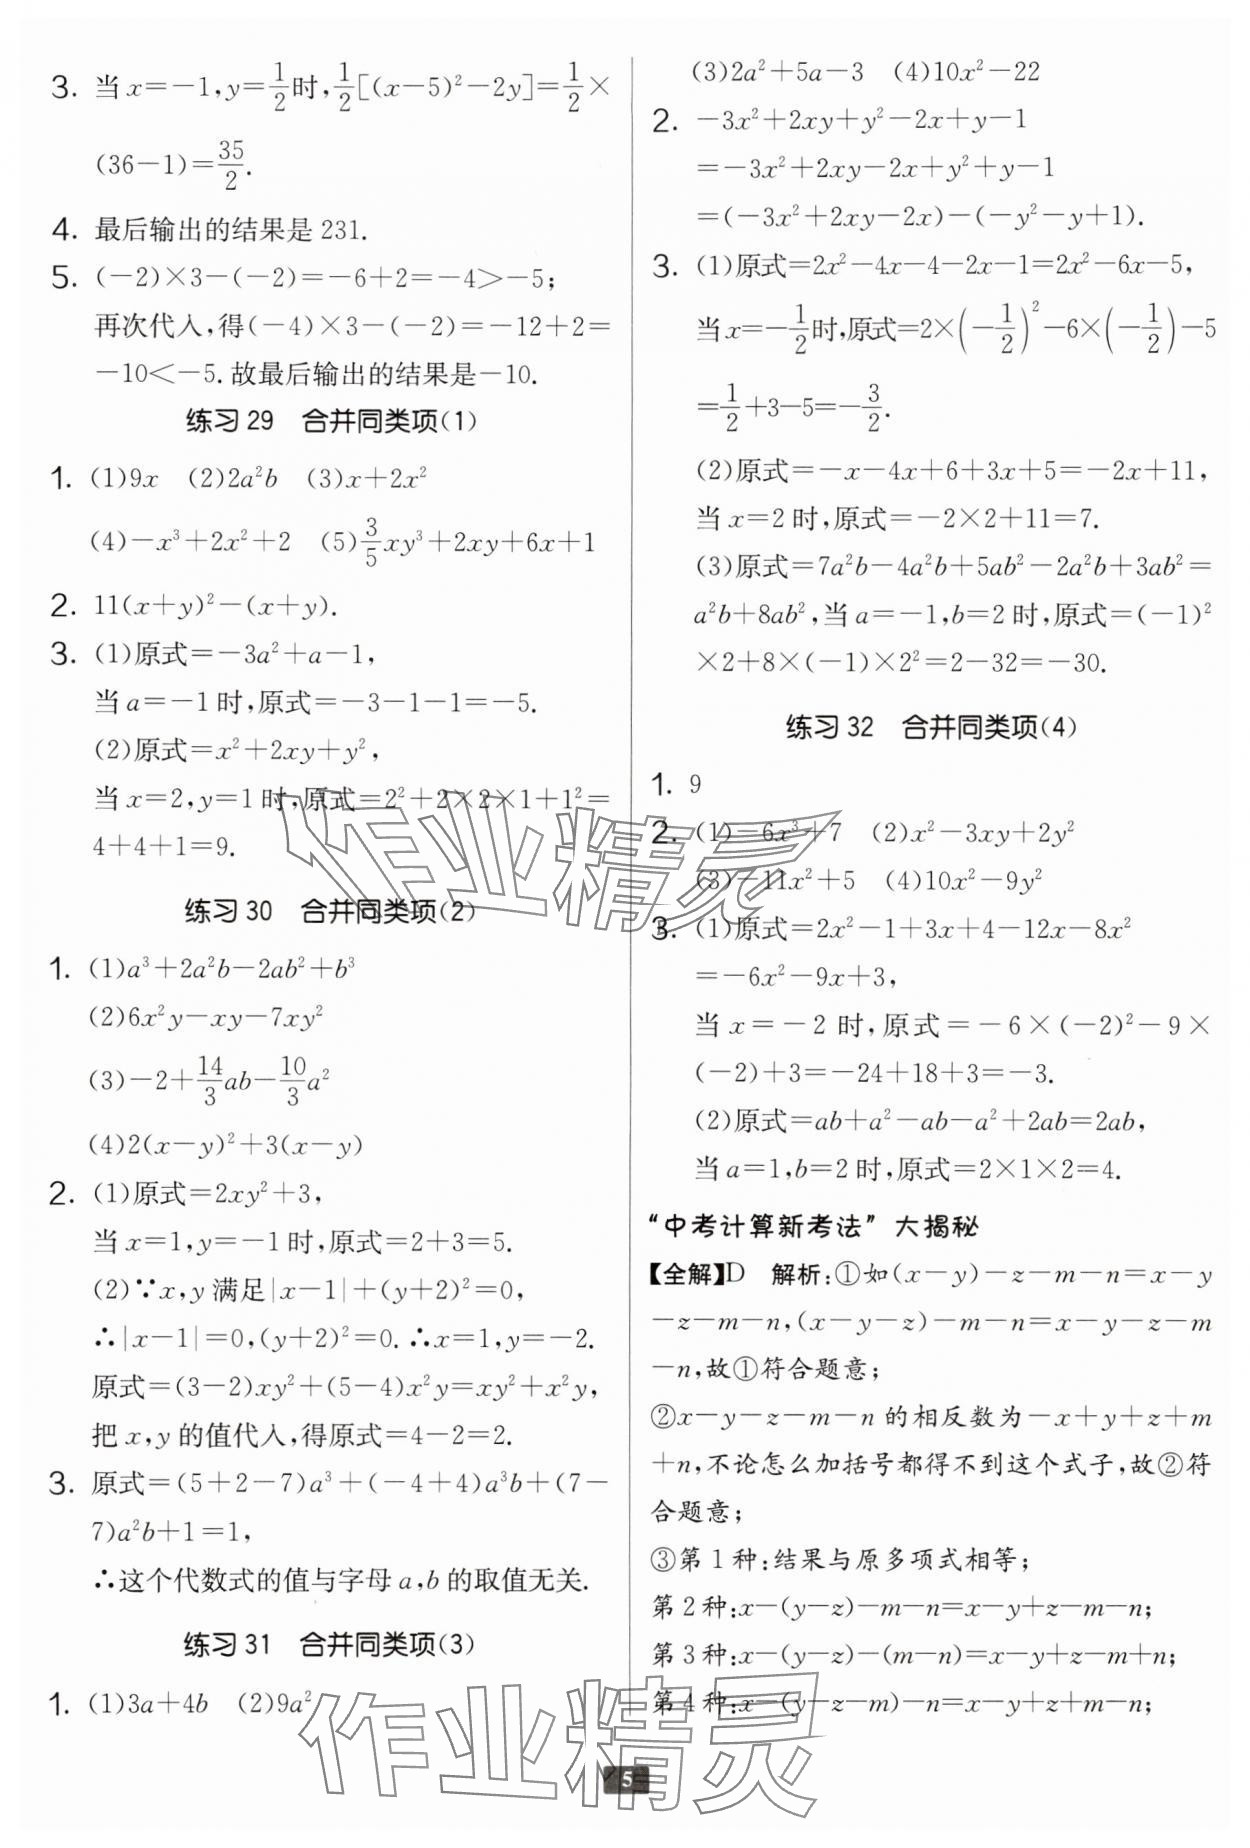 3. 当 x=-1,y=1/2时,1/2[(x-5)²-2y]=1/2×
(36-1)=35/2.
4. 最后输出的结果是 231.
5. (-2)×3-(-2)=-6+2=-4>-5;
再次代入,得(-4)×3-(-2)=-12+2=
-10<-5.故最后输出的结果是-10.
练习 29 合并同类项(1)
1. (1)9x (2)2a²b (3)x+2x²
(4)-x³+2x²+2 (5)3/5xy³+2xy+6x+1
2. 11(x+y)²-(x+y).
3. (1)原式=-3a²+a-1,
当 a=-1 时,原式=-3-1-1=-5.
(2)原式=x²+2xy+y²,
当 x=2,y=1 时,原式=2²+2×2×1+1²=
4+4+1=9.
练习 30 合并同类项(2)
1. (1)a³+2a²b-2ab²+b³
(2)6x²y-xy-7xy²
(3)-2+14/3ab-10/3a²
(4)2(x-y)²+3(x-y)
2. (1)原式=2xy²+3,
当 x=1,y=-1 时,原式=2+3=5.
(2)∵x,y 满足|x-1|+(y+2)²=0,
∴|x-1|=0,(y+2)²=0.∴x=1,y=-2.
原式=(3-2)xy²+(5-4)x²y=xy²+x²y,
把 x,y 的值代入,得原式=4-2=2.
3. 原式=(5+2-7)a³+(-4+4)a³b+(7-
7)a²b+1=1,
∴这个代数式的值与字母 a,b 的取值无关.
练习 31 合并同类项(3)
1. (1)3a+4b (2)9a²
(3)2a²+5a-3 (4)10x²-22
2. -3x²+2xy+y²-2x+y-1
=-3x²+2xy-2x+y²+y-1
=(-3x²+2xy-2x)-(-y²-y+1).
3. (1)原式=2x²-4x-4-2x-1=2x²-6x-5,
当 x=-1/2时,原式=2×(-1/2)²-6×(-1/2)-5
=1/2+3-5=-3/2.
(2)原式=-x-4x+6+3x+5=-2x+11,
当 x=2 时,原式=-2×2+11=7.
(3)原式=7a²b-4a²b+5ab²-2a²b+3ab²=
a²b+8ab²,当 a=-1,b=2 时,原式=(-1)²
×2+8×(-1)×2²=2-32=-30.
练习 32 合并同类项(4)
1. 9
2. (1)-6x³+7 (2)x²-3xy+2y²
(3)-11x²+5 (4)10x²-9y²
3. (1)原式=2x²-1+3x+4-12x-8x²
=-6x²-9x+3,
当 x=-2 时,原式=-6×(-2)²-9×
(-2)+3=-24+18+3=-3.
(2)原式=ab+a²-ab-a²+2ab=2ab,
当 a=1,b=2 时,原式=2×1×2=4.
“中考计算新考法”大揭秘
【全解】D 解析:①如(x-y)-z-m-n=x-y
-z-m-n,(x-y-z)-m-n=x-y-z-m
-n,故①符合题意;
②x-y-z-m-n 的相反数为-x+y+z+m
+n,不论怎么加括号都得不到这个式子,故②符
合题意;
③第 1 种:结果与原多项式相等;
第 2 种:x-(y-z)-m-n=x-y+z-m-n;
第 3 种:x-(y-z)-(m-n)=x-y+z-m+n;
第 4 种:x-(y-z-m)-n=x-y+z+m-n;
5
作业精灵
作业精灵